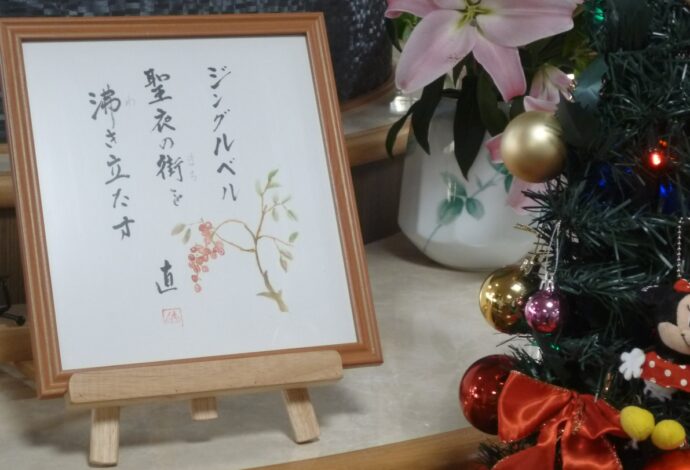 ジングルベル
聖衣の街を
沸き立たす
直